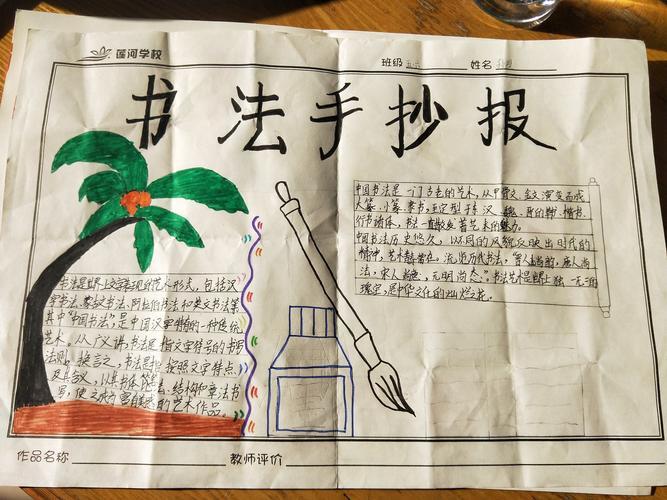 莲河学校
班级
姓名
书法手抄报
中国书法是一门古老的艺术,从甲骨文、金文演变而成
大篆、小篆、隶书,至定型于东汉、魏、晋的草书、楷书、
行书诸体,书法一直散发着艺术的魅力。
中国书法历史悠久,以不同的风貌反映出时代的
精神,艺术青春常在。浏览历代书法,"晋人尚韵,唐人尚
法,宋人尚意,元明尚态"。书法艺术是独一无二的
瑰宝,是中华文化的灿烂之花。
书法是世上文字表现的艺术形式,包括汉
字书法、蒙文书法、阿拉伯书法和英文书法等。
其中"中国书法",是中国汉字特有的一种传统
艺术。从广义讲,书法是指文字符号的书写
法则。换言之,书法是指按照文字特点
及其含义,以其书体笔法、结构和章法书
写,使之成为富有美感的艺术作品。
作品名称
教师评价